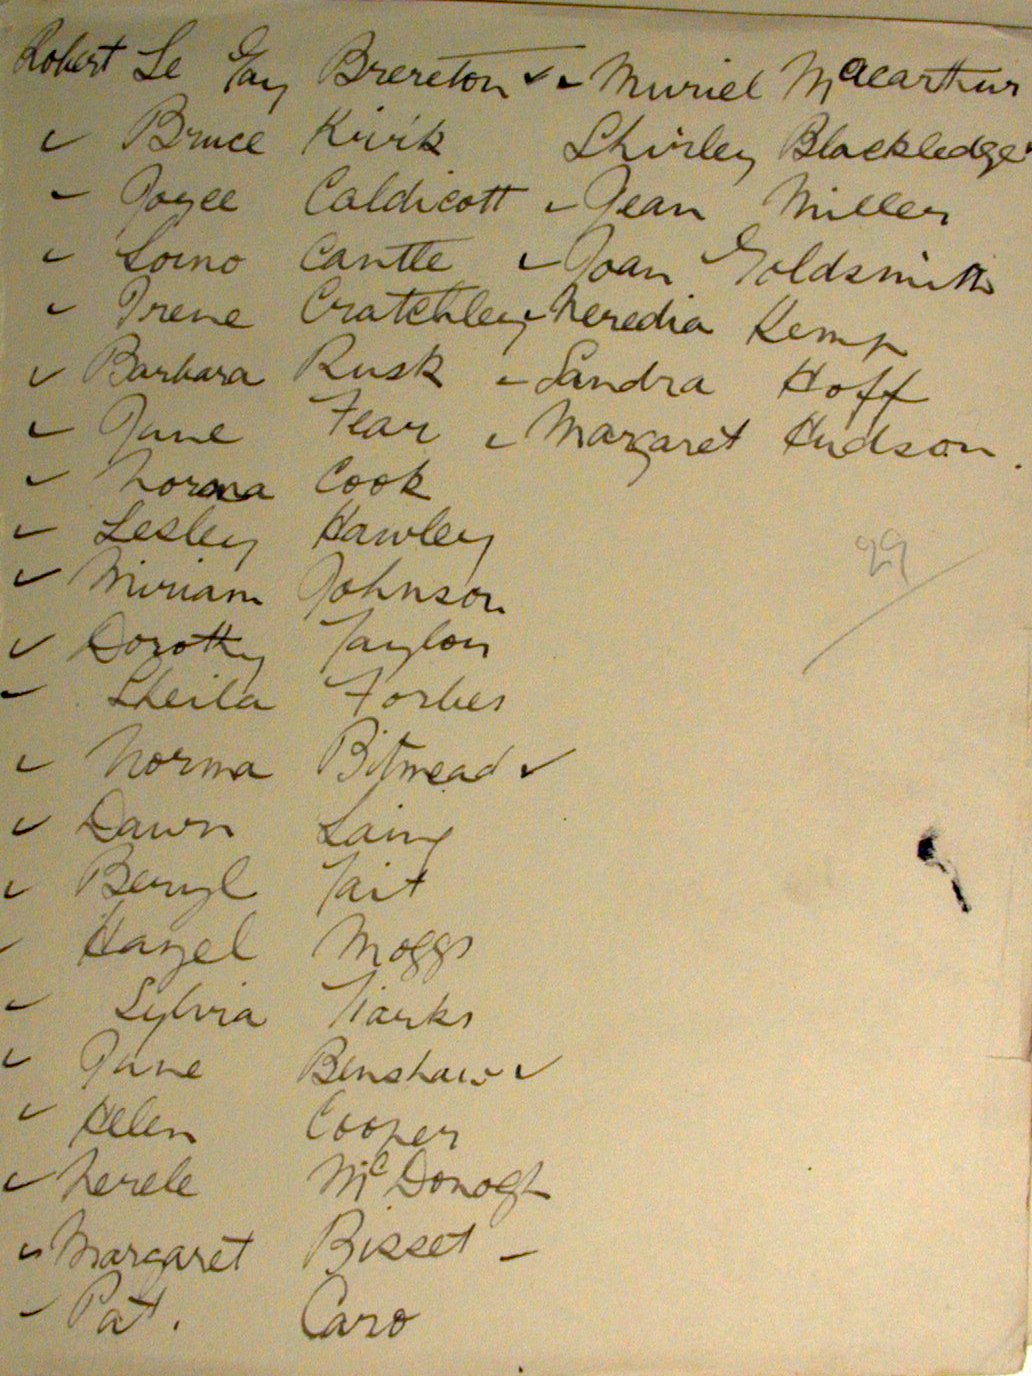 Robert Le Gay Brereton ✓ ✓ Muriel Macarthur
✓ Bruce Kirik Shirley Blackledge
✓ Joyce Caldicott ✓ Jean Miller
✓ Cantle ✓ Joan Goldsmith
✓ Irene Cratchley ✓ Neredia Kemp
✓ Barbara Rusk ✓ Sandra Hoff
✓ Jane Fear ✓ Margaret Hudson.
✓ Norma Cook
✓ Lesley Hawley
✓ Miriam Johnson
✓ Dorothy Taylor
✓ Sheila Forbes
✓ Norma Bitmead ✓
✓ Dawn Laing
✓ Beryl Tait
✓ Hazel Moggs
✓ Sylvia Tiarks
✓ Jane Benshaw ✓
✓ Helen Cooper
✓ Nerele McDonogh
✓ Margaret Bisset –
✓ Pat. Caro
29